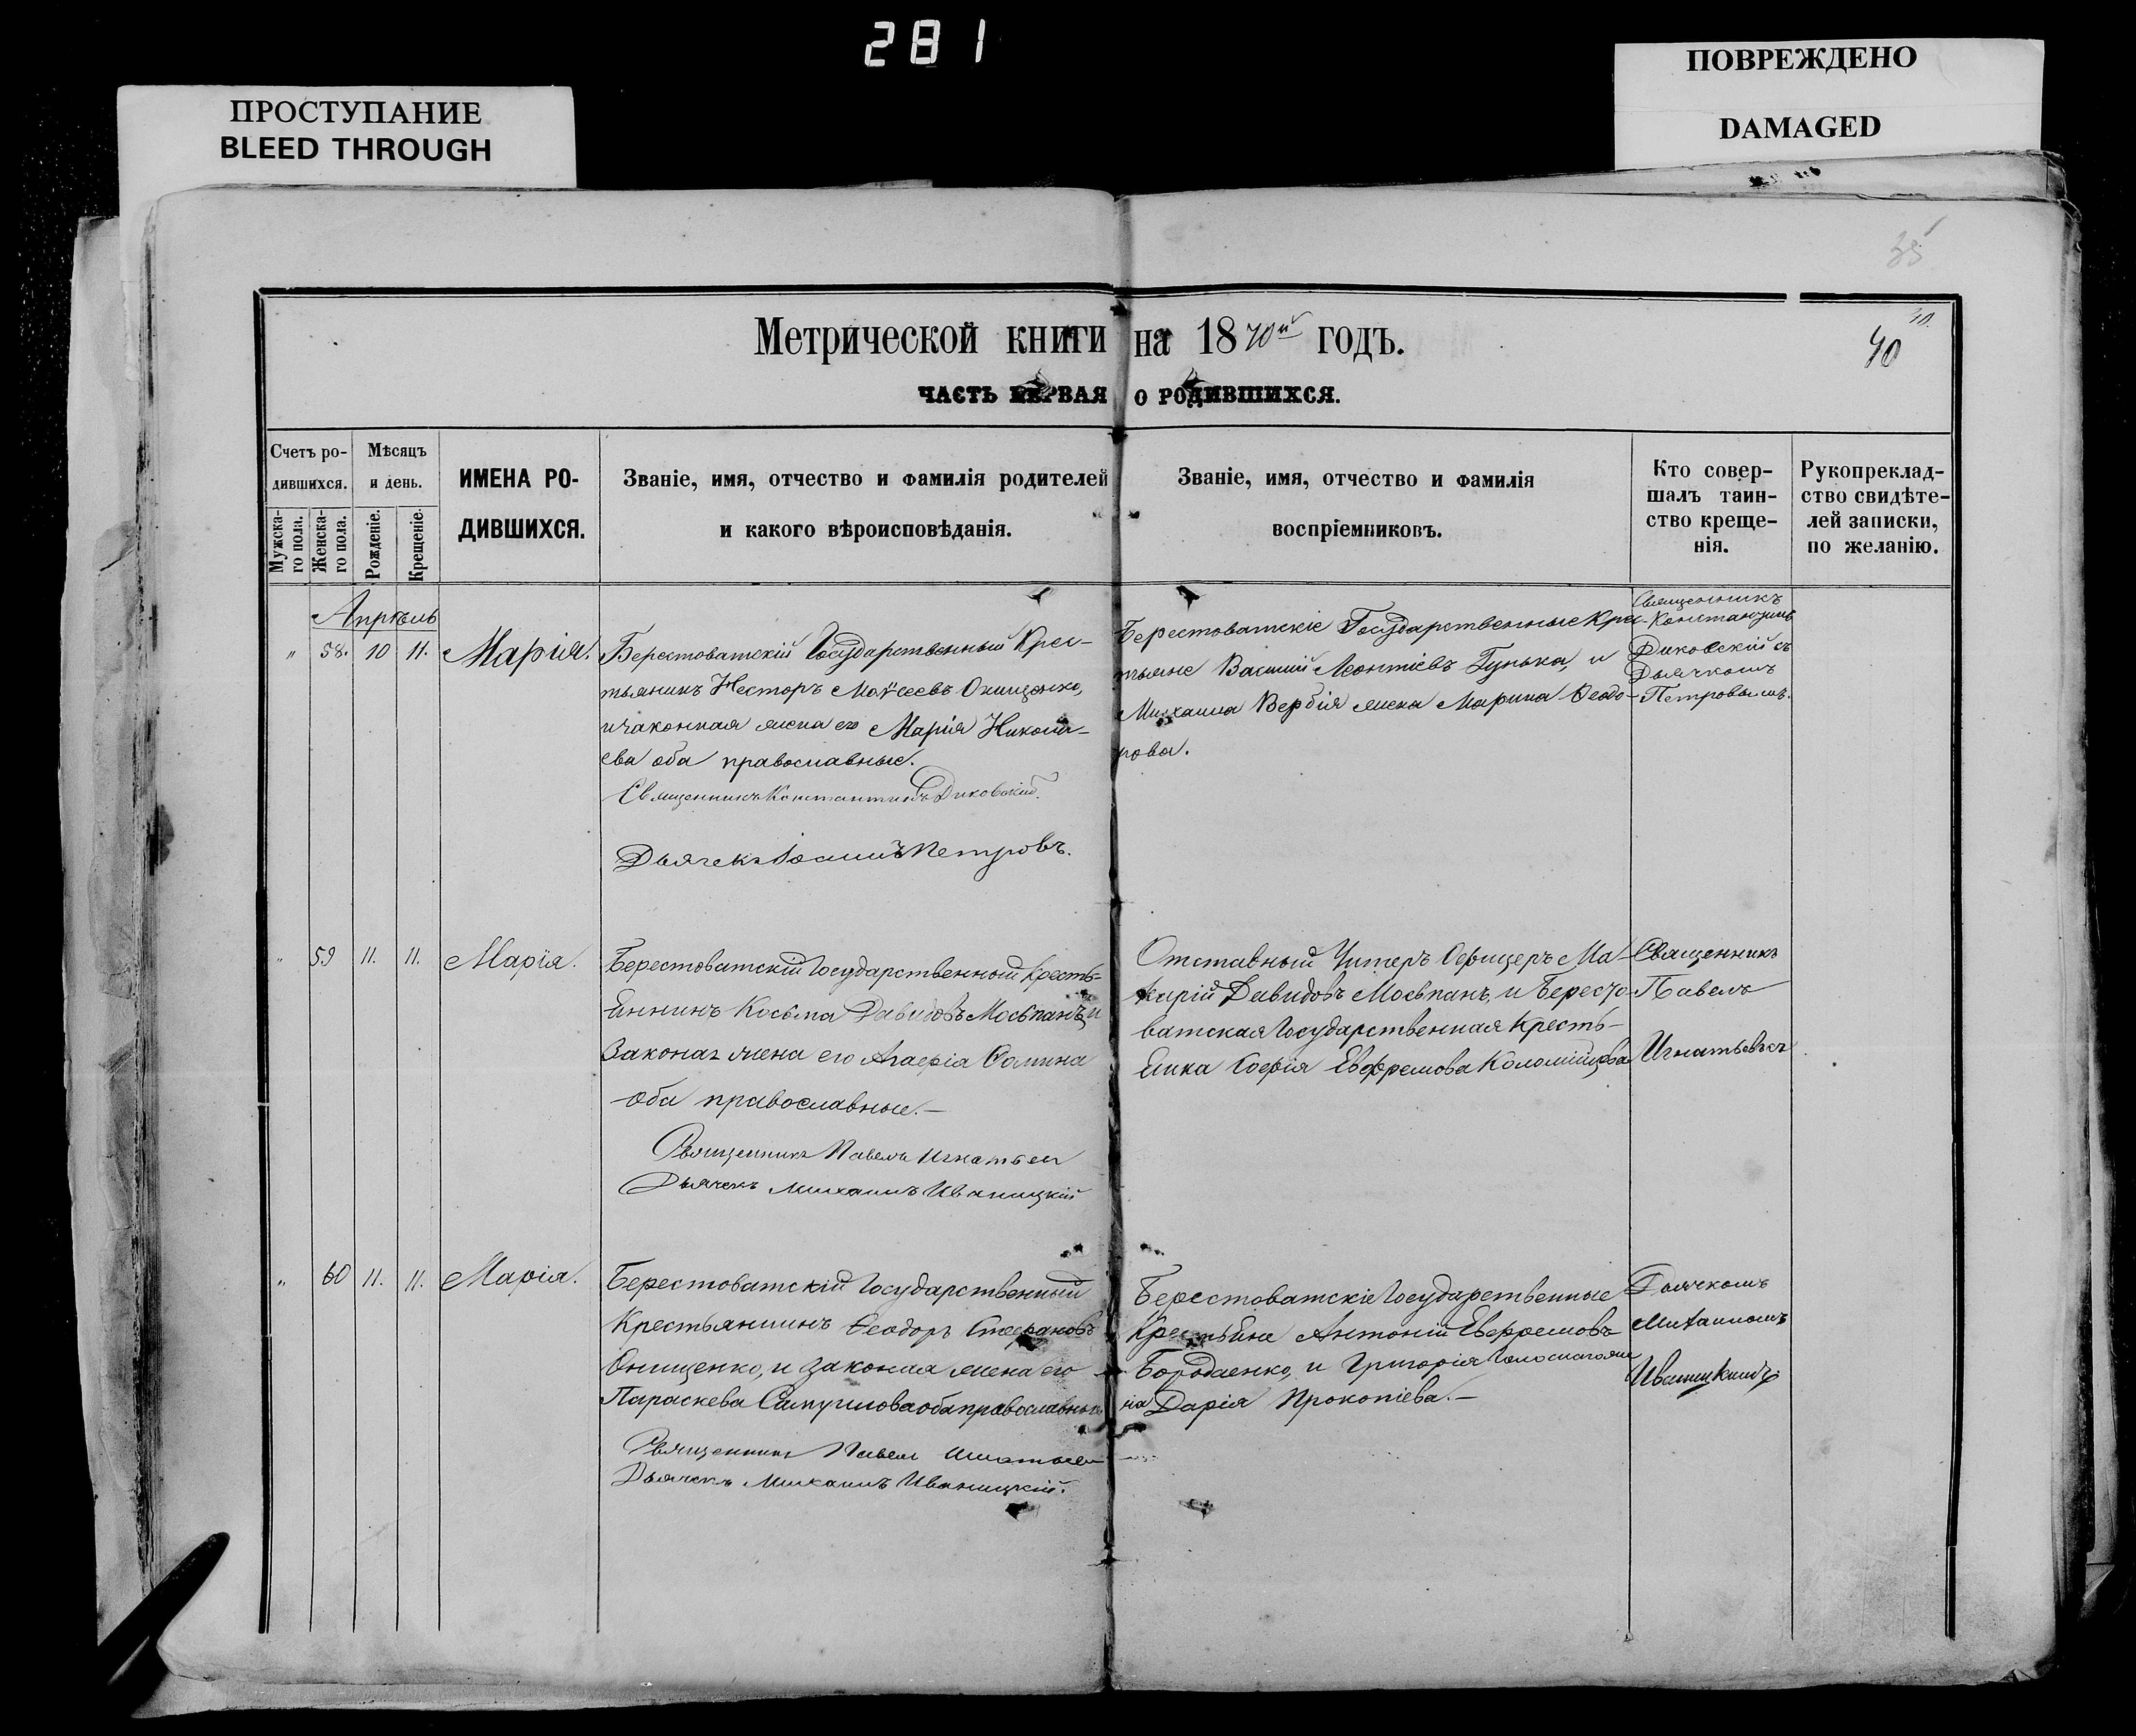 281
ПРОСТУПАНИЕ
BLEED THROUGH
ПОВРЕЖДЕНО
DAMAGED
35
Метрической книги на 1870й годъ.
40
ЧАСТЬ ПЕРВАЯ О РОДИВШИХСЯ.
Счетъ ро-
дившихся.
Мужска-
го пола.
Женска-
го пола.
Мѣсяцъ
и день.
Рожденіе.
Крещеніе.
ИМЕНА РО-
ДИВШИХСЯ.
Званіе, имя, отчество и фамилія родителей
и какого вѣроисповѣданія.
Званіе, имя, отчество и фамилія
воспріемниковъ.
Кто совер-
шалъ таин-
ство креще-
нія.
Рукоприклад-
ство свидѣте-
лей записки,
по желанію.
Апрѣль
" 58. 10 11. Марія.
Берестоватскій Государственный Крес-
тьянинъ Несторъ Моѵсеевъ Онищенко,
и законная жена его Марія Никола-
ева оба православные.
Священникъ Константинъ Диковскій.
Дьячекъ Іоаннъ Петровъ.
Берестоватскіе Государственные Крес-
тьяне Василій Леонтіевъ Гунька, и
Михаила Вербія жена Марина Ѳеодо-
рова.
Священникъ
Константинъ
Диковскій съ
Дьячкомъ
Петровымъ.
" 59 11. 11. Марія.
Берестоватскій Государственный Кресть-
янинъ Косьма Давидовъ Мосьпанъ, и
Законая жена его Агафія Ѳомина
оба православные.—
Священникъ Павелъ Игнатьев
Дьячекъ Михаилъ Иваницкій
Отставный Унтеръ Офицеръ Ма-
карій Давидовъ Мосьпанъ, и Бересто-
ватская Государственная Кресть-
янка Софія Евфремова Коломійцева
Священникъ
Павелъ
Игнатьевъ съ
" 60 11. 11. Марія.
Берестоватскій Государственный
Крестьянинъ Ѳеодоръ Стефановъ
Онищенко, и законая жена его
Параскева Самуилова оба православные
Священникъ Павел Игнатьев
Дьячекъ Михаилъ Иваницкій.
Берестоватскіе Государственные
Крестьяне Антоній Евфремовъ
Бородаенко, и Григорія
на Дарія Прокопіева.—
Дьячкомъ
Михаиломъ
Иваницкимъ